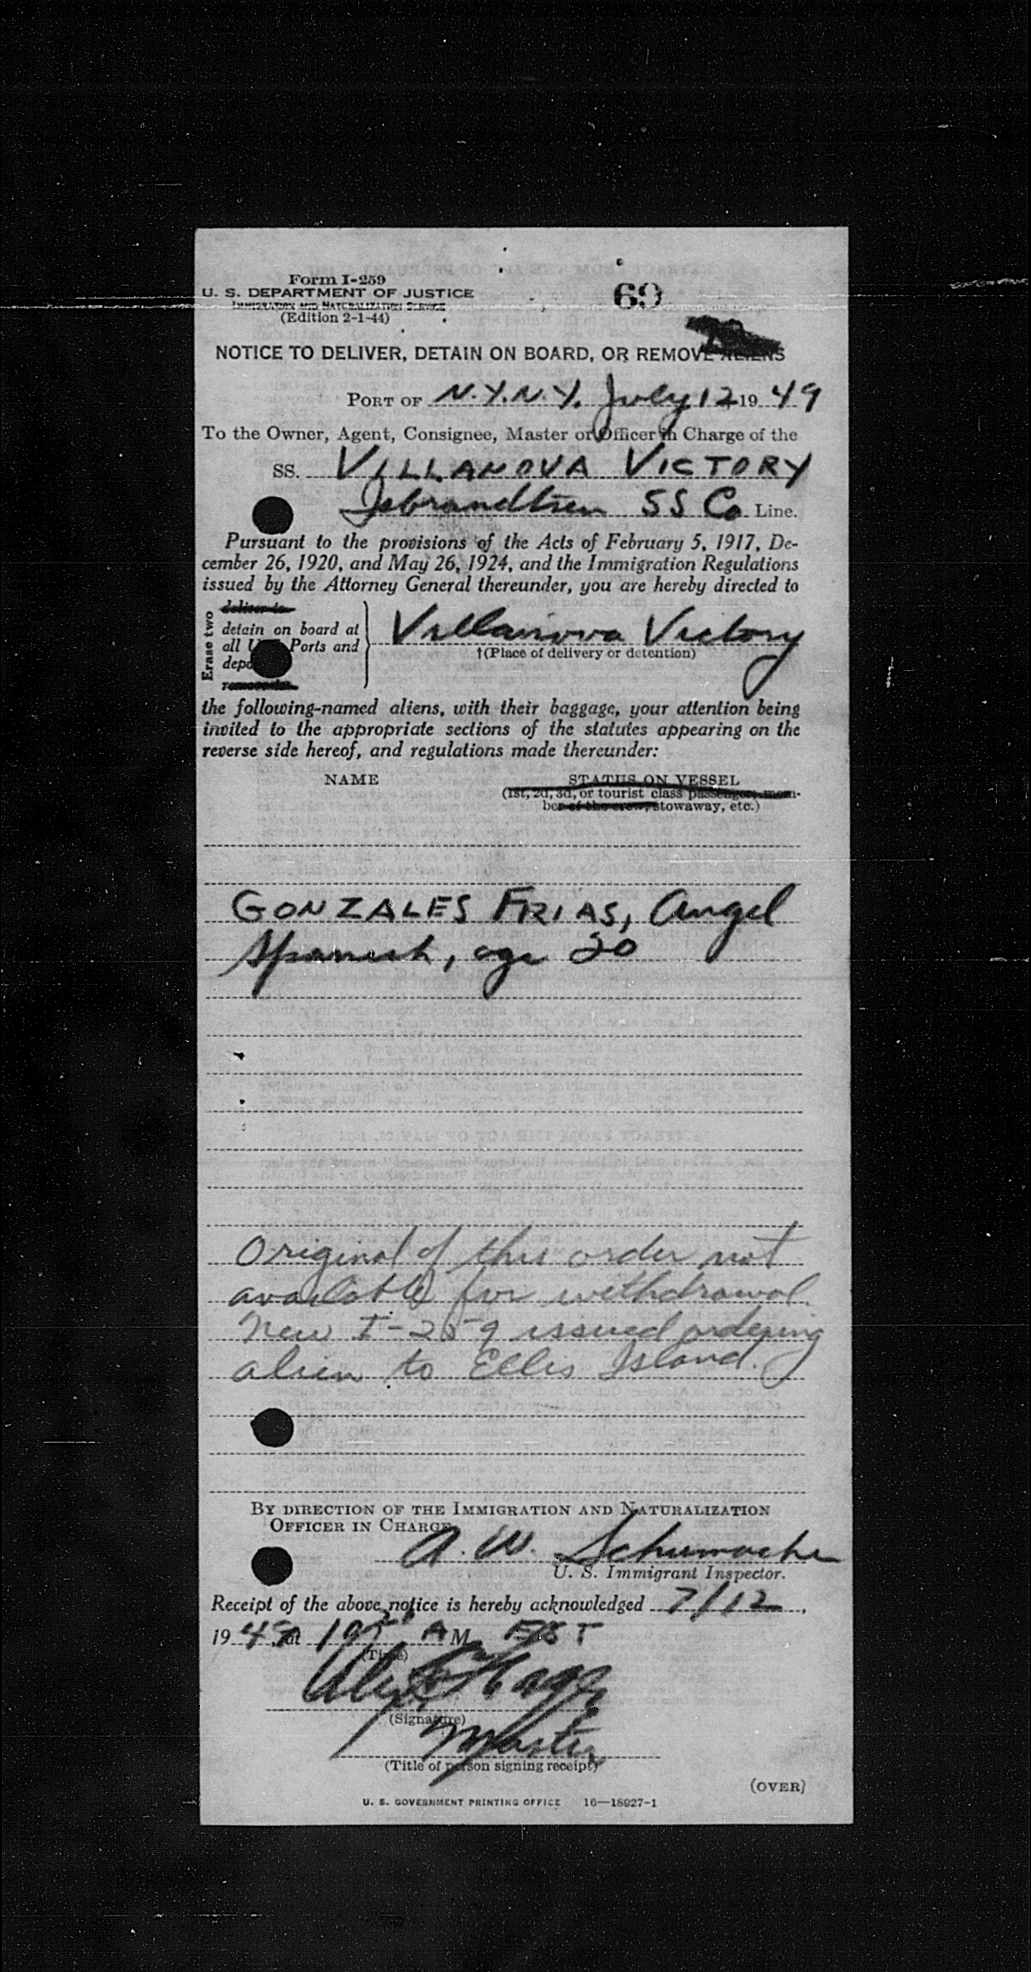 Form I-259
U. S. DEPARTMENT OF JUSTICE
IMMIGRATION AND NATURALIZATION SERVICE
(Edition 2-1-44)
69
NOTICE TO DELIVER, DETAIN ON BOARD, OR REMOVE ALIENS
PORT OF N.Y.N.Y. July 12 1949
To the Owner, Agent, Consignee, Master or Officer in Charge of the
SS. VILLANOVA VICTORY
Isbrandtsen SS Co Line.
Pursuant to the provisions of the Acts of February 5, 1917, De-
cember 26, 1920, and May 26, 1924, and the Immigration Regulations
issued by the Attorney General thereunder, you are hereby directed to
Erase two
deliver to
detain on board at
all U. S. Ports and
deport
remove to
Villanova Victory
†(Place of delivery or detention)
the following-named aliens, with their baggage, your attention being
invited to the appropriate sections of the statutes appearing on the
reverse side hereof, and regulations made thereunder:
NAME STATUS ON VESSEL
(1st, 2d, 3d, or tourist class passenger, mem-
ber of the crew, stowaway, etc.)
GONZALES FRIAS, Angel
Spanish, age 20
Original of this order not
available for withdrawal.
New I-259 issued ordering
alien to Ellis Island.
BY DIRECTION OF THE IMMIGRATION AND NATURALIZATION
OFFICER IN CHARGE
A. W. Schumacher
U. S. Immigrant Inspector.
Receipt of the above notice is hereby acknowledged 7/12,
1949, at AM.
(Time)
(Signature)
Master
(Title of person signing receipt)
(OVER)
U. S. GOVERNMENT PRINTING OFFICE 16—18927-1